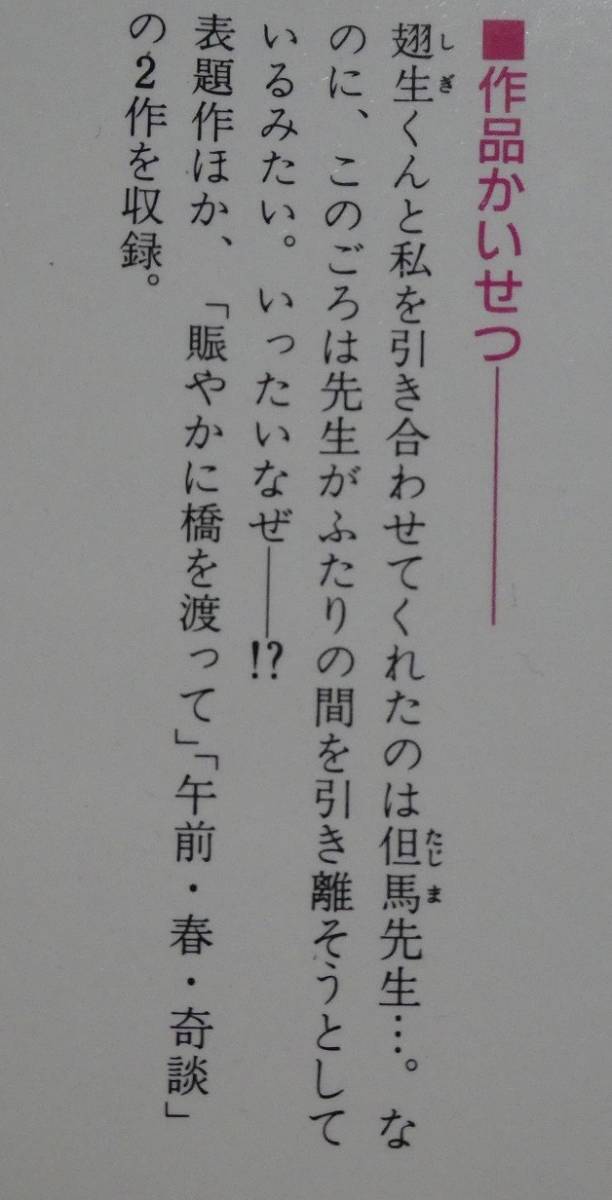 ■作品かいせつ――
翅生くんと私を引き合わせてくれたのは但馬先生…。な
のに、このごろは先生がふたりの間を引き離そうとして
いるみたい。いったいなぜ――!?
表題作ほか、「賑やかに橋を渡って」「午前・春・奇談」
の2作を収録。
しぎ
たじま